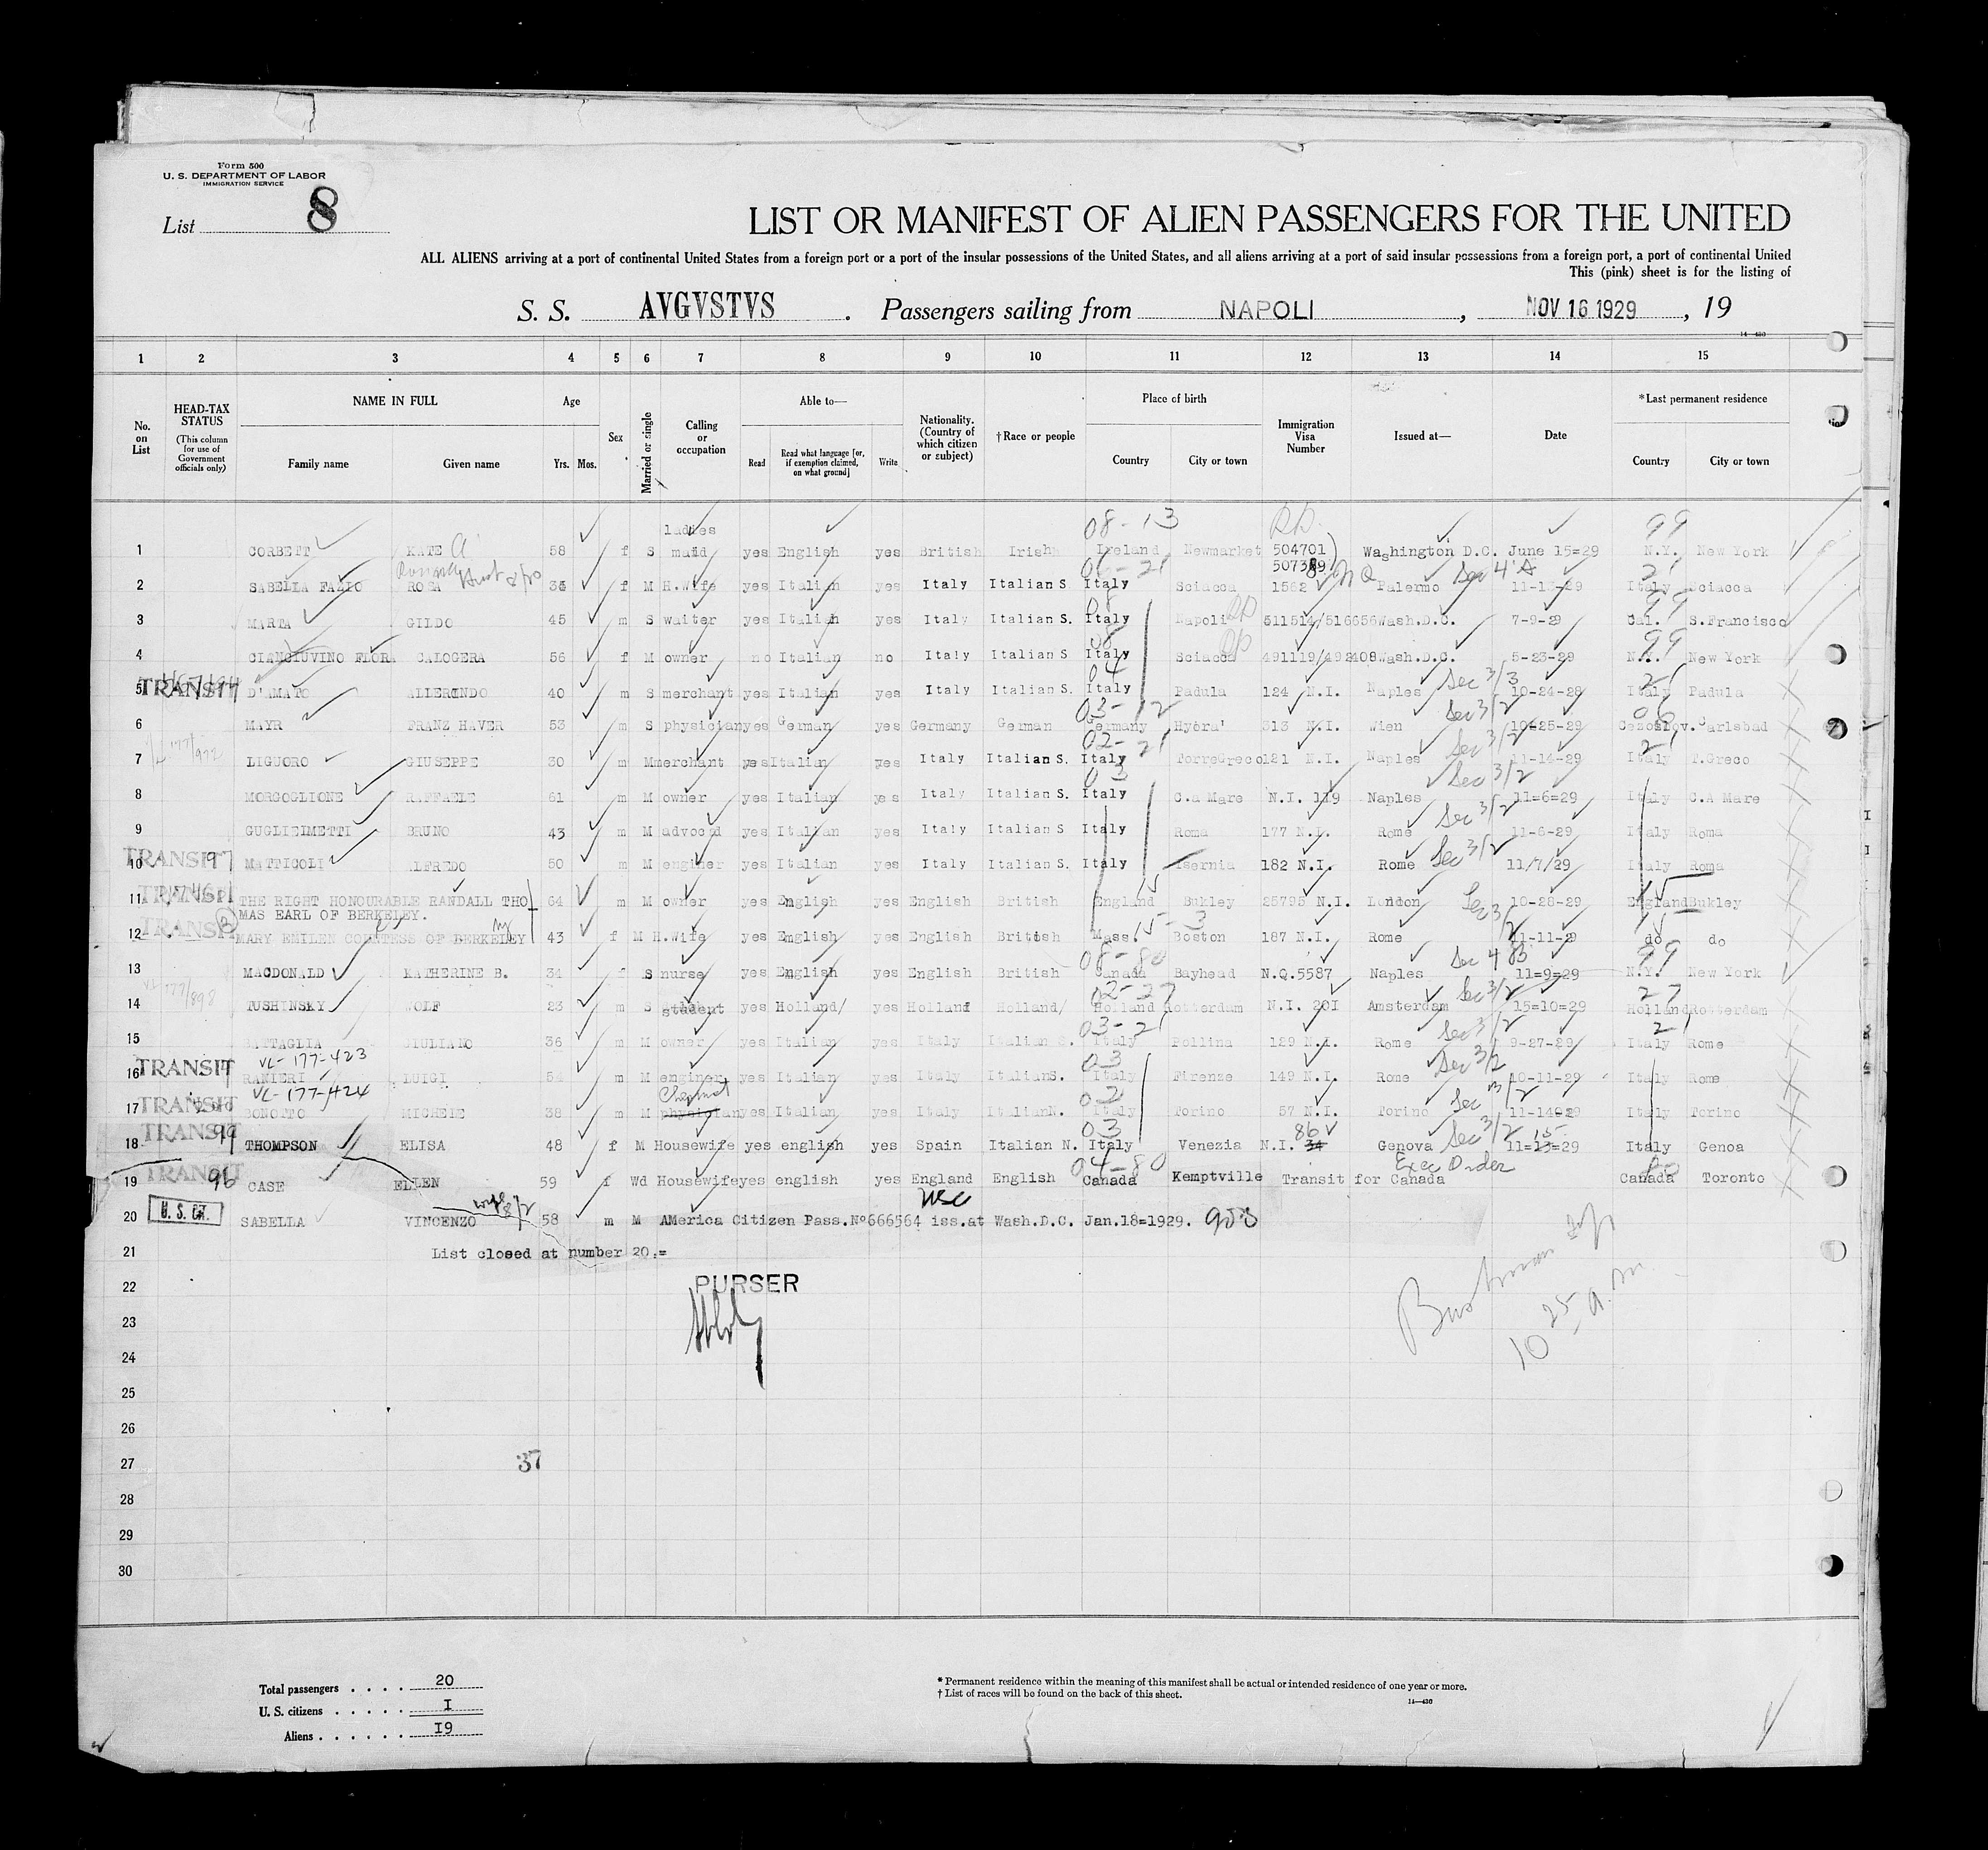 Form 500
U. S. DEPARTMENT OF LABOR
IMMIGRATION SERVICE
List 8
LIST OR MANIFEST OF ALIEN PASSENGERS FOR THE UNITED
ALL ALIENS arriving at a port of continental United States from a foreign port or a port of the insular possessions of the United States, and all aliens arriving at a port of said insular possessions from a foreign port, a port of continental United
This (pink) sheet is for the listing of
S. S. AVGVSTVS . Passengers sailing from NAPOLI , NOV 16 1929 , 19
14—430
1 2 3 4 5 6 7 8 9 10 11 12 13 14 15
No. on List
HEAD-TAX STATUS (This column for use of Government officials only)
NAME IN FULL Family name Given name
Age Yrs. Mos.
Sex
Married or single
Calling or occupation
Able to— Read Read what language [or, if exemption claimed, on what ground] Write
Nationality. (Country of which citizen or subject)
†Race or people
Place of birth Country City or town
Immigration Visa Number
Issued at—
Date
*Last permanent residence Country City or town
ladies 08-13 99
1 CORBETT KATE a 58 f S maid yes English yes British Irish Ireland Newmarket 504701 Washington D.C. June 15=29 N.Y. New York
2 SABELLA FAZIO ROSA f M H.Wife yes Italian yes Italy Italian S Italy Sciacca 1562 NQ Palermo Sec 4 A 11-13-29 Italy Sciacca
3 MARTA GILDO 45 m S waiter yes Italian yes Italy Italian S. Italy Napoli 511514/516656 Wash.D.C. 7-9-29 Cal. S.Francisco
99
4 CIANCIUVINO FLORA CALOGERA 56 f M owner no Italian no Italy Italian S Italy Sciacca 491119/492408 Wash.D.C. 5-23-29 New York
04 Sec 3/3 21
TRANSIT
5 D'AMATO ALLERINDO 40 m S merchant yes Italian yes Italy Italian S. Italy Padula 124 N.I. Naples 10-24-28 Italy Padula
03-12 Sec 3/2
6 MAYR FRANZ HAVER 53 m S physician yes German yes Germany German Germany 313 N.I. Wien 10-25-29 Carlsbad
02-21 Sec 3/2 21
7 LIGUORO GIUSEPPE 30 m M merchant yes Italian yes Italy Italian S. Italy TorreGreco 121 N.I. Naples 11-14-29 Italy T.Greco
03 Sec 3/2
8 MORGOGLIONE RAFFAELE 61 m M owner yes Italian yes Italy Italian S. Italy C.a Mare N.I. 119 Naples 11=6=29 Italy C.A Mare
Sec 3/2
9 GUGLIEIMETTI BRUNO 43 m M advocd yes Italian yes Italy Italian S Italy Roma 177 N.I. Rome 11-6-29 Italy Roma
TRANSIT Sec 3/2
10 MATTICOLI ALFREDO 50 m M enginer yes Italian yes Italy Italian S. Italy Isernia 182 N.I. Rome 11/7/29 Italy Roma
TRANSIT 15
11 THE RIGHT HONOURABLE RANDALL THO 64 m M owner yes English yes English British England Bukley 25795 N.I. London 10-28-29 England Bukley
MAS EARL OF BERKELEY.
TRANSIT 15-3 Sec 3/2
12 MARY EMILEN COUNTESS OF BERKELEY 43 f M H.Wife yes English yes English British Mass. Boston 187 N.I. Rome 11-11-29 do do
08-80 Sec 4 B 99
13 MACDONALD KATHERINE B. 34 f S nurse yes English yes English British Canada Bayhead N.Q.5587 Naples 11=9=29 N.Y. New York
02-27 Sec 3/2 27
14 TUSHINSKY WOLF 23 m S student yes Holland/ yes Holland Holland/ Holland Rotterdam N.I. 20I Amsterdam 15=10=29 Holland Rotterdam
03-21 Sec 3/2 21
15 BATTAGLIA GIULIANO 36 m M owner yes Italian yes Italy Italian S. Italy Pollina 129 N.I. Rome 9-27-29 Italy Rome
TRANSIT VL-177-423 03 Sec 3/2
16 RANIERI LUIGI 54 m M enginer yes Italian yes Italy ItalianS. Italy Firenze 149 N.I. Rome 10-11-29 Italy Rome
TRANSIT VL-177-424 Chemist 02 Sec 3/2
17 BONOTTO MICHELE 38 m M physician yes Italian yes Italy ItalianN. Italy Torino 57 N.I. Torino 11-14-29 Italy Torino
TRANSIT 99 03 86 Sec 3/2 15
18 THOMPSON ELISA 48 f M Housewife yes english yes Spain Italian N. Italy Venezia N.I. 34 Genova 11=13=29 Italy Genoa
TRANSIT 96 04-80 Exec Order
19 CASE ELLEN 59 f Wd Housewife yes english yes England English Canada Kemptville Transit for Canada Canada Toronto
U. S. CIT. wife 8/2 USC
20 SABELLA VINCENZO 58 m M AMerica Citizen Pass.Nº666564 iss.at Wash.D.C. Jan.18=1929.
21 List closed at number 20.=
22 PURSER
23
24
10 25 a.m.
25
26
27 37
28
29
30
Total passengers . . . . 20
U. S. citizens . . . . . I
Aliens . . . . . . I9
* Permanent residence within the meaning of this manifest shall be actual or intended residence of one year or more.
† List of races will be found on the back of this sheet.
14—430